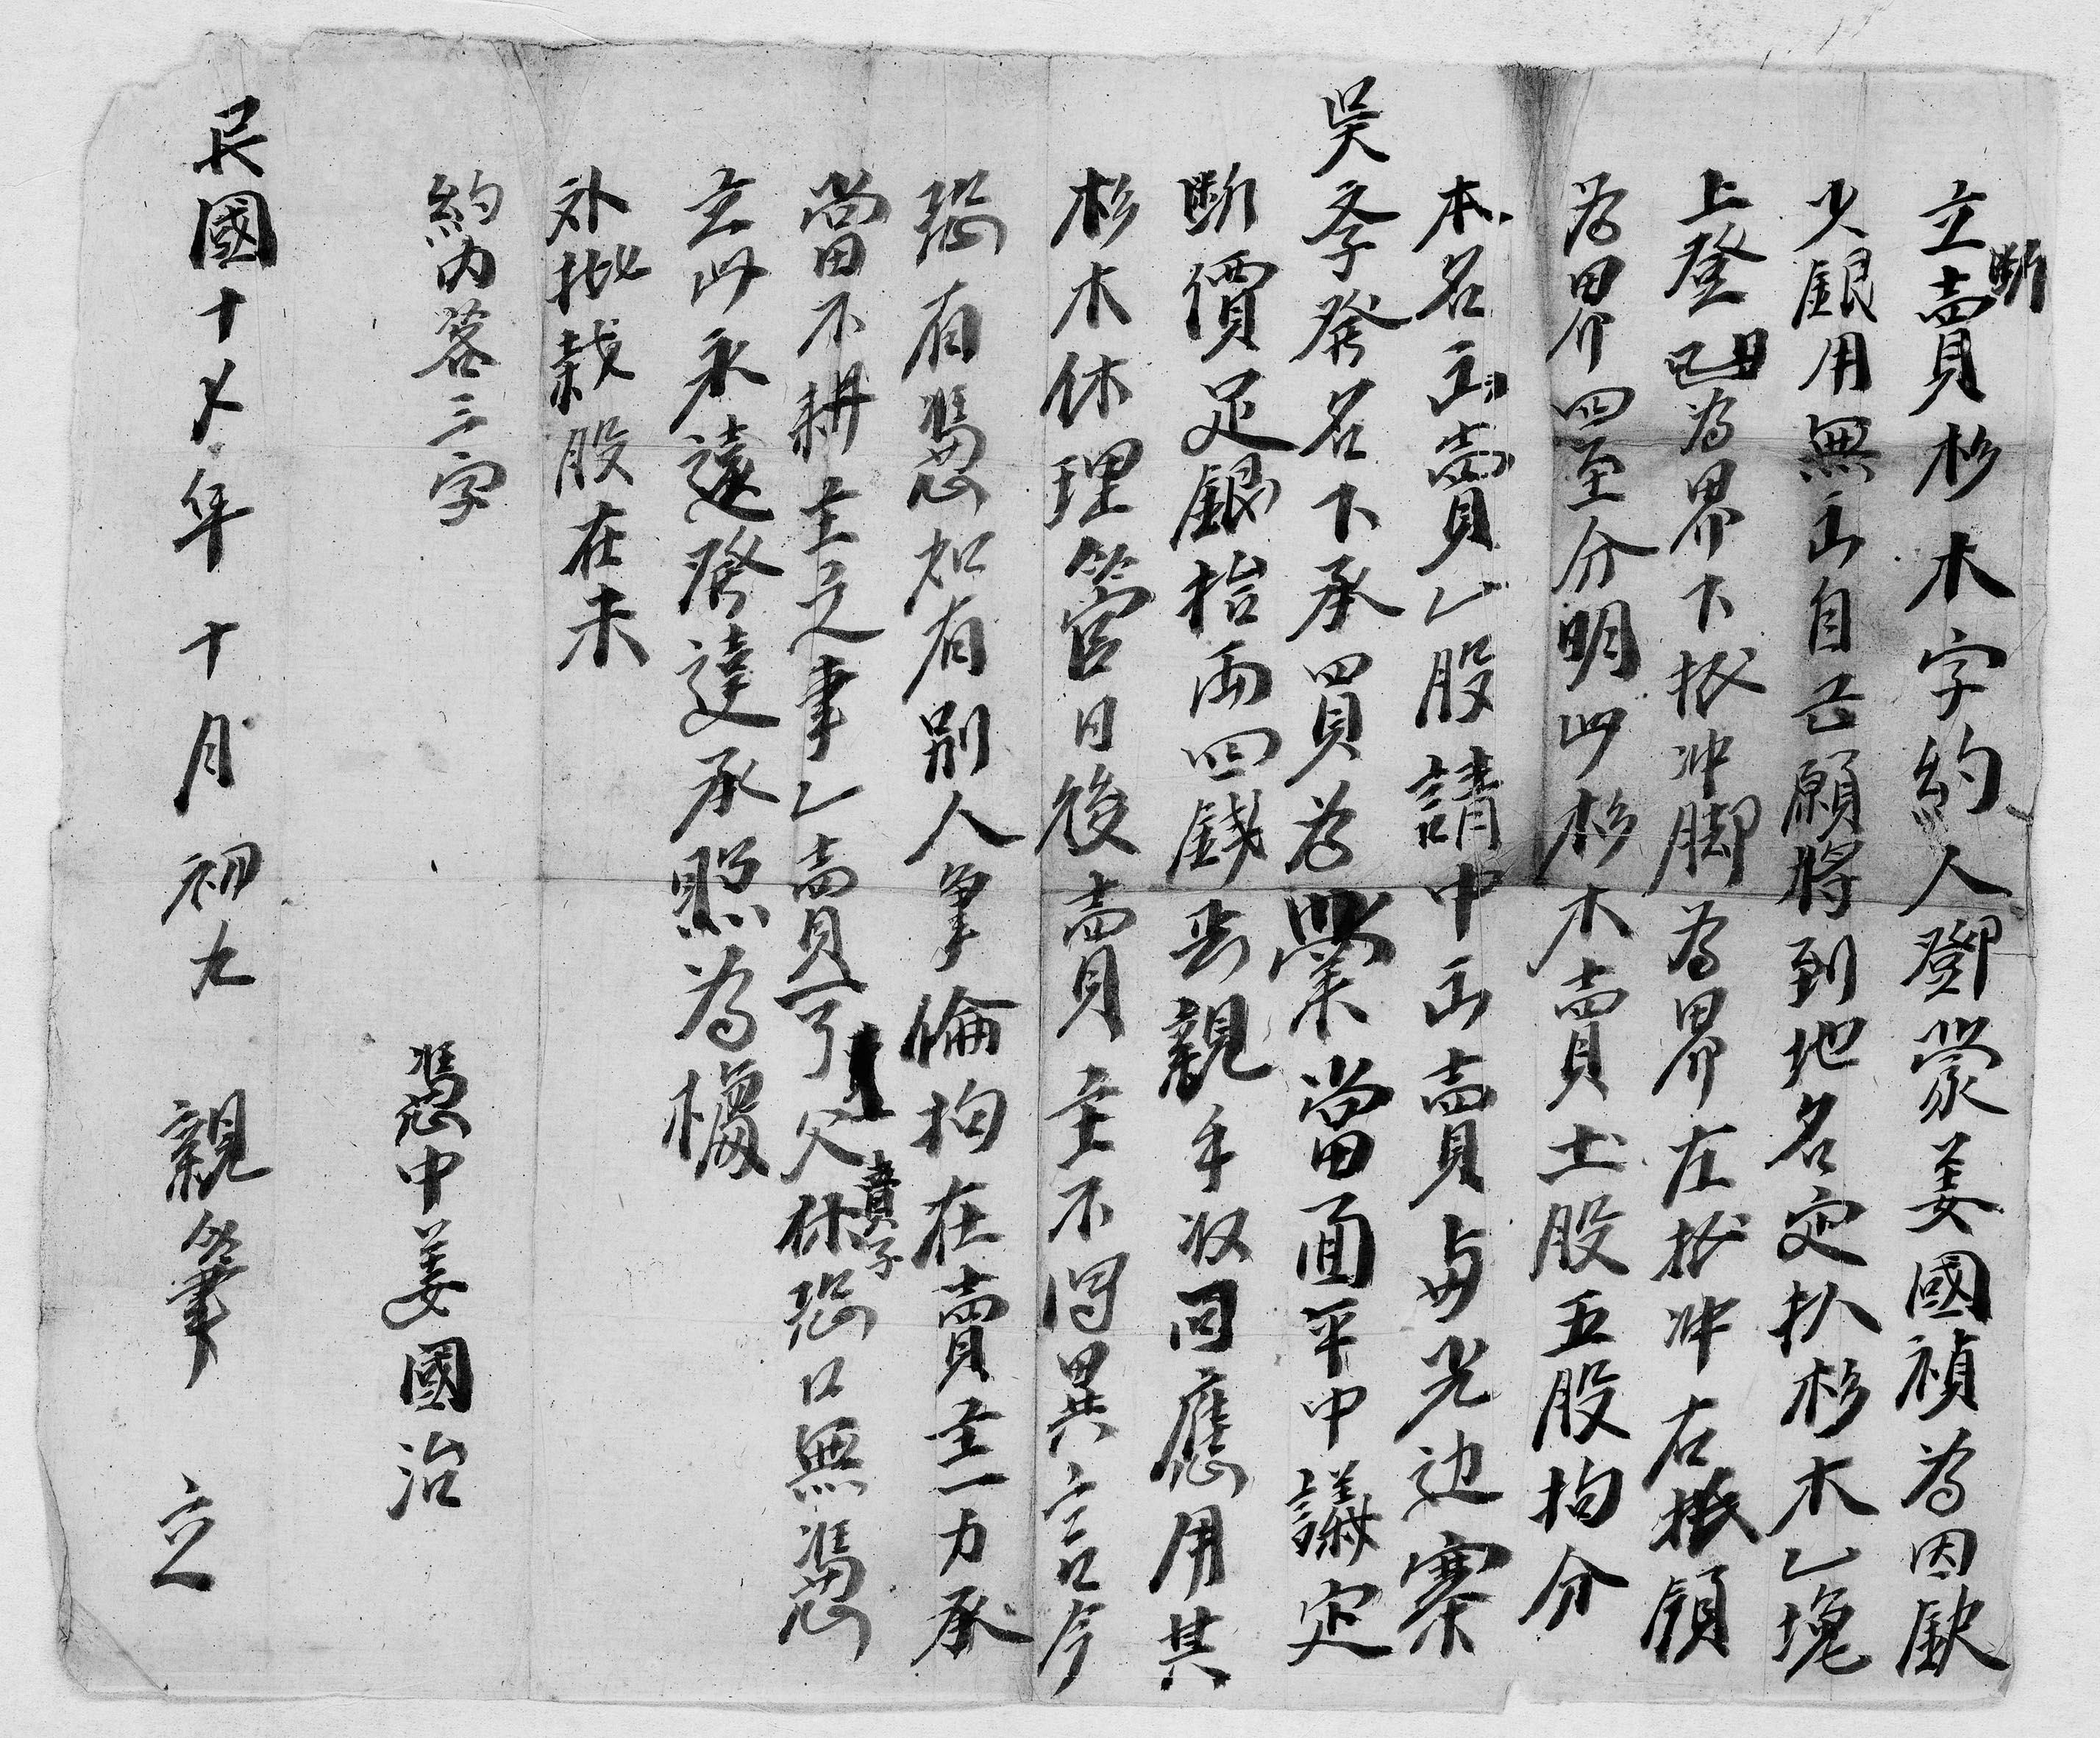 立断賣杉木字約人鄧蒙姜國禎為因缺
少銀用無出自己願將到地名定扒杉木乙塊
上登田為界下抵冲脚為界左抵冲右抵領
為界四至分明此杉木賣土股五股拘分
本名出賣乙股請中出賣与光边寨
吴季發名下承買為業當面平中議定
断價足銀拾两四錢去親手收回應用其
杉木休理管日後賣主不得異言今
恐有憑如有別人争倫拘在賣主一力承
當不耕主之事乙賣了父賣子休恐口無憑
立此永遠發達承照為據
外批栽股在未
約内落三字
憑中姜國治
民國十年十月初九親筆立